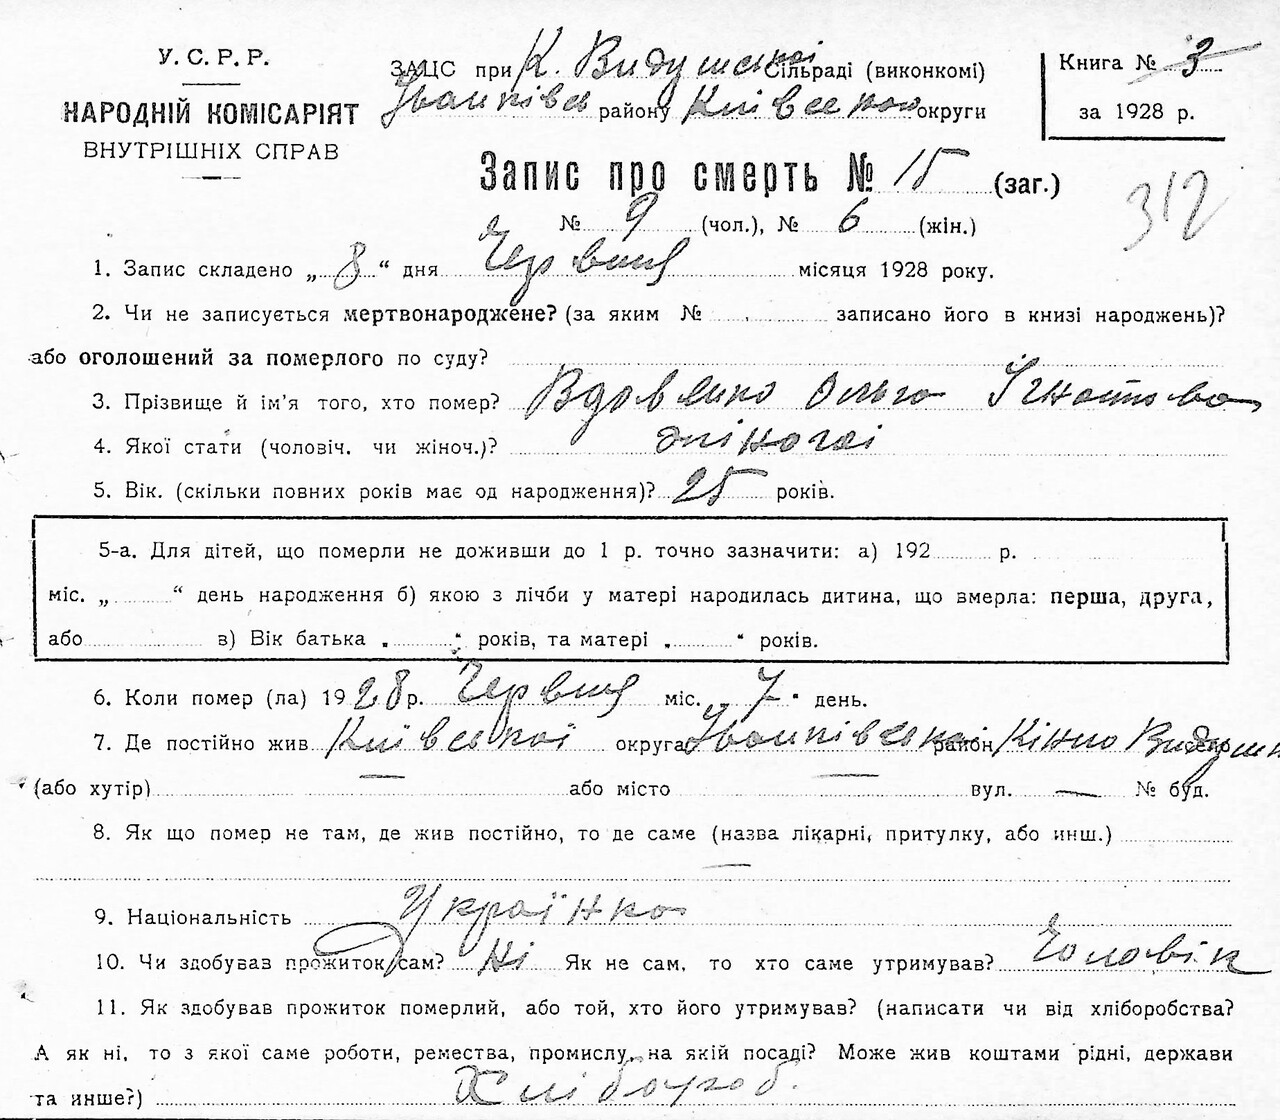 У. С. Р. Р.
НАРОДНІЙ КОМІСАРІЯТ
ВНУТРІШНІХ СПРАВ
ЗАЦС при К. Видумській Сільраді (виконкомі)
району Київської округи
Книга № 3
за 1928 р.
Запис про смерть № 15 (заг.)
№ 9 (чол.), № 6 (жін.)
312
1. Запис складено „ 8 “ дня Червня місяця 1928 року.
2. Чи не записується мертвонароджене? (за яким № записано його в книзі народжень)?
або оголошений за померлого по суду?
3. Прізвище й ім’я того, хто помер? Ольга Ігнатова
4. Якої стати (чоловіч. чи жіноч.)? жіночої
5. Вік. (скільки повних років має од народження)? 25 років.
5-а. Для дітей, що померли не доживши до 1 р. точно зазначити: а) 192 р.
міс. „ “ день народження б) якою з лічби у матері народилась дитина, що вмерла: перша, друга,
або в) Вік батька „ “ років, та матері „ “ років.
6. Коли помер (ла) 1928 р. Червня міс. „ 7 “ день.
7. Де постійно жив Київської округа район
(або хутір) — або місто — вул. — № буд.
8. Як що помер не там, де жив постійно, то де саме (назва лікарні, притулку, або инш.)
—
9. Національність Українка
10. Чи здобував прожиток сам? Ні Як не сам, то хто саме утримував? Чоловік
11. Як здобував прожиток померлий, або той, хто його утримував? (написати чи від хліборобства?
А як ні, то з якої саме роботи, ремества, промислу, на якій посаді? Може жив коштами рідні, держави
та инше?) Хлібороб.